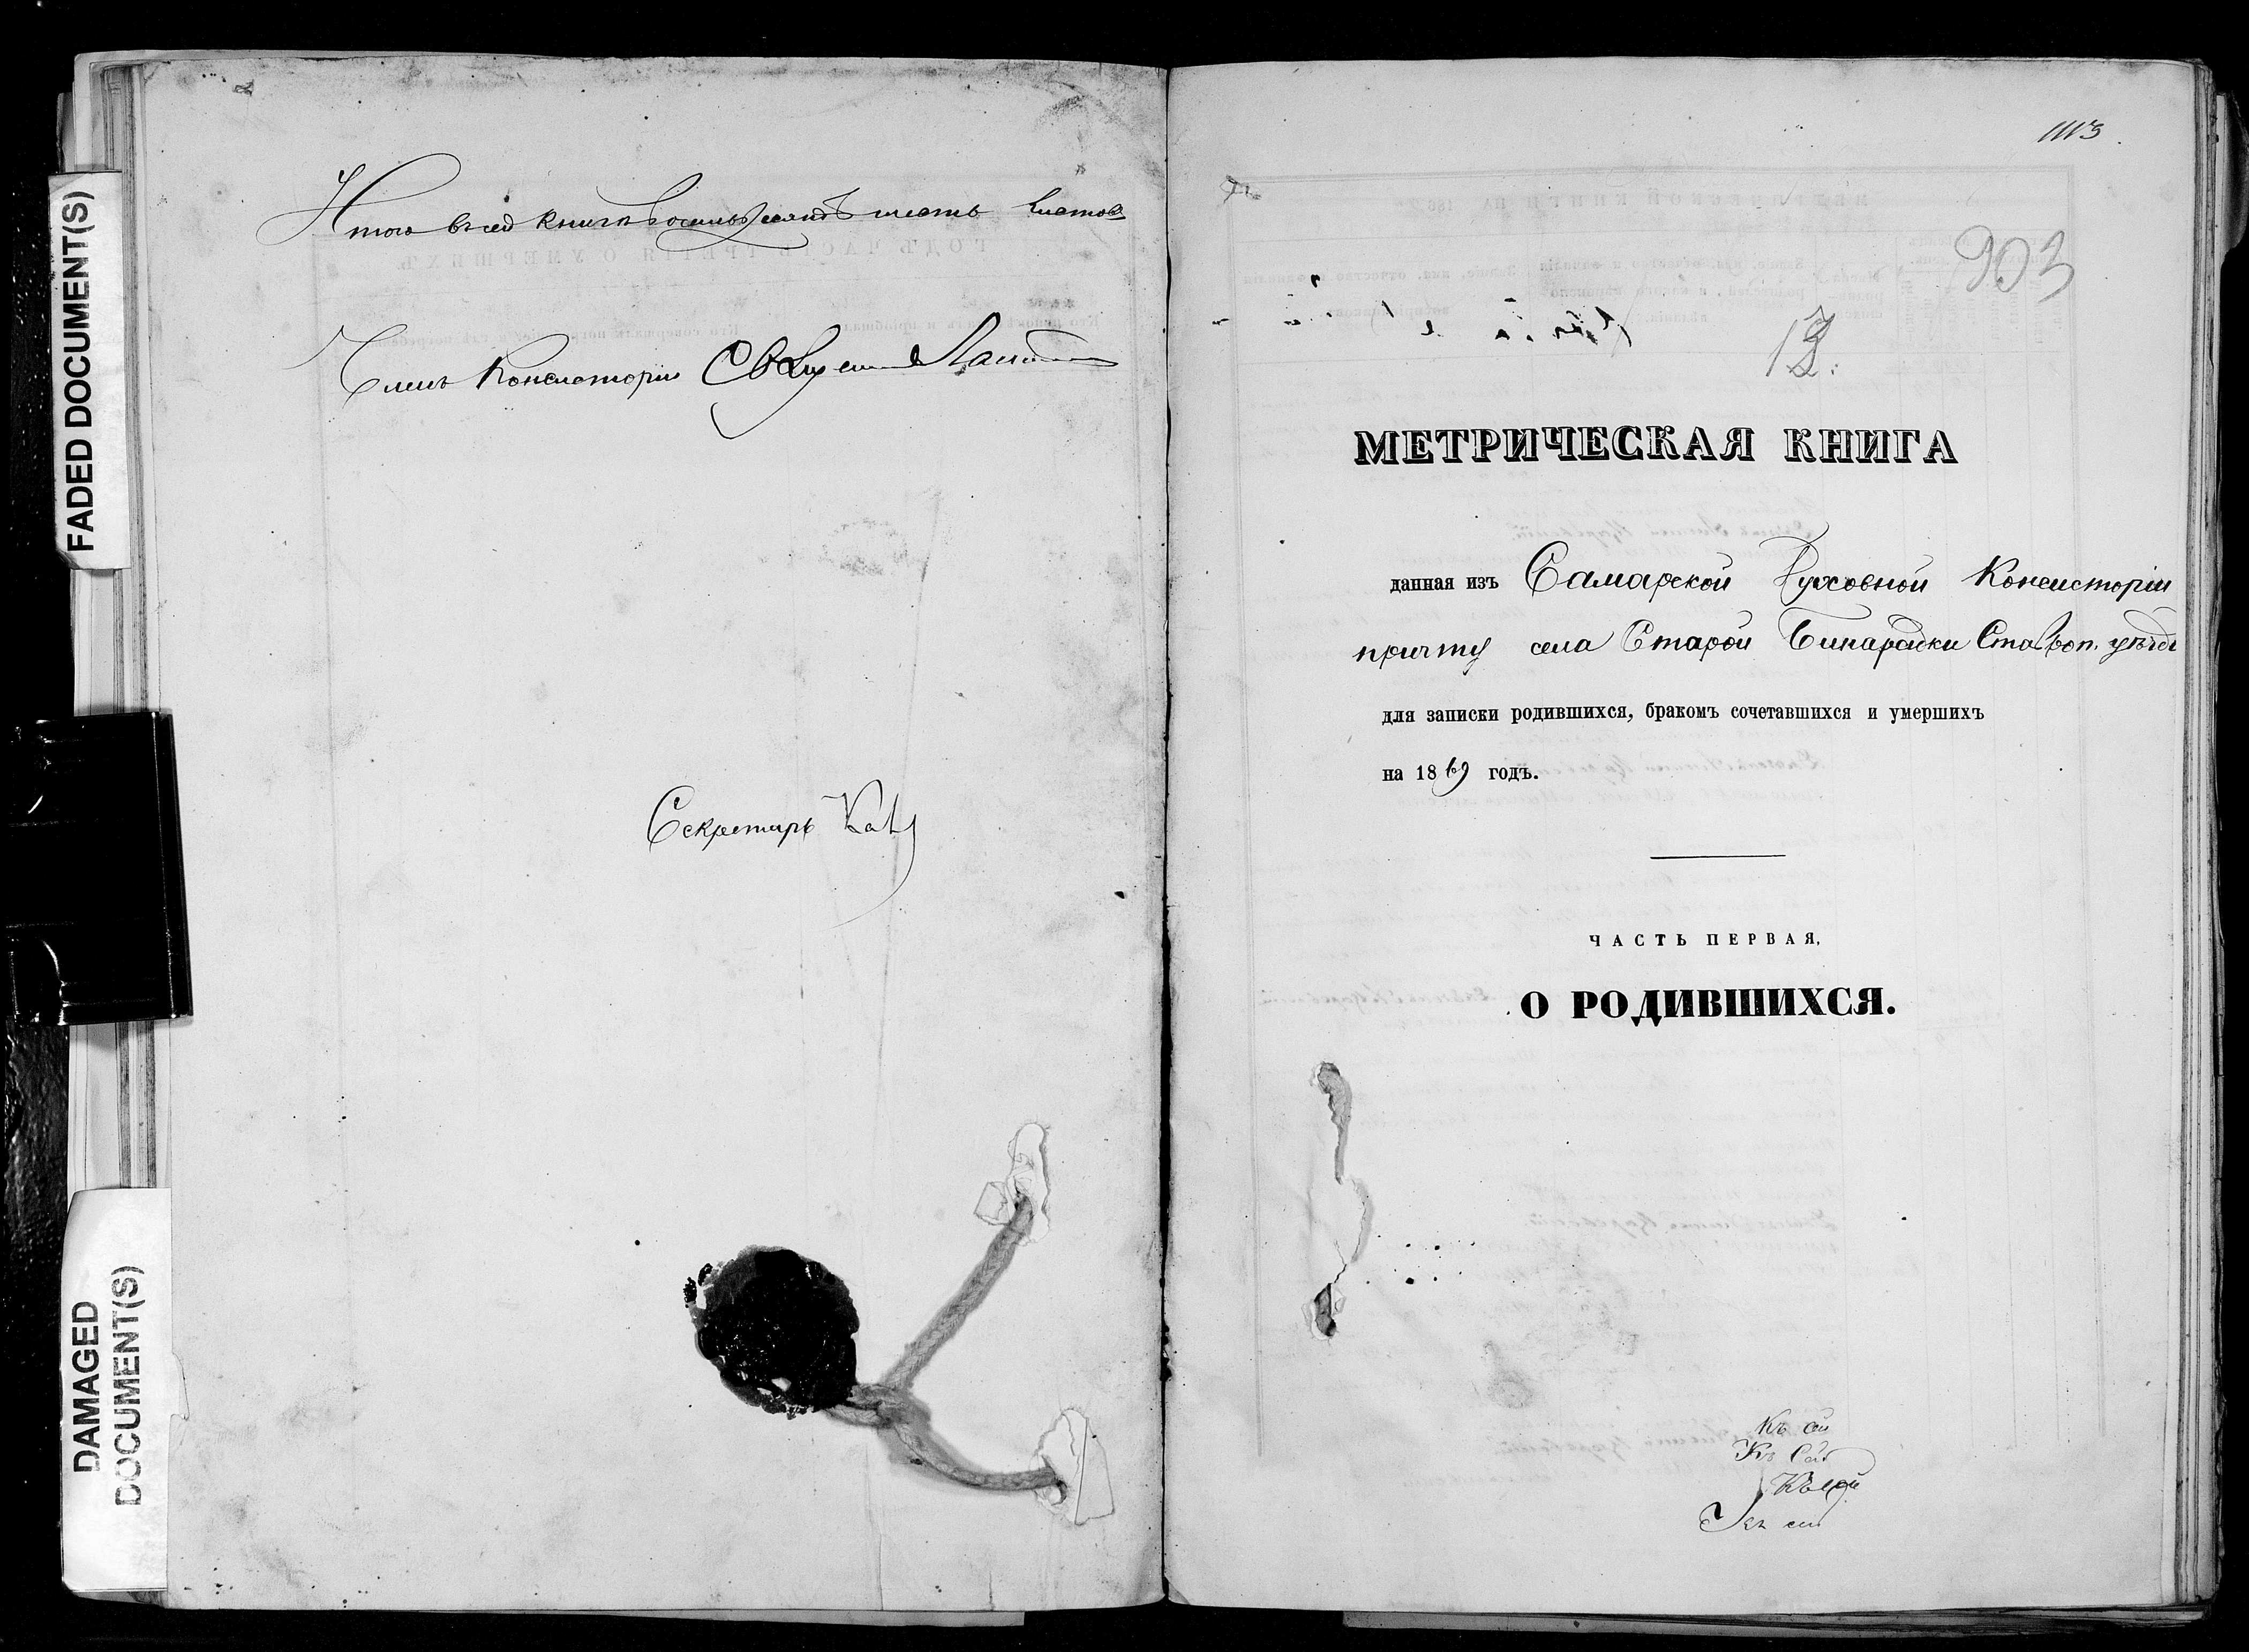 FADED DOCUMENT(S)
DAMAGED
DOCUMENT(S)
Итого въ сей книгѣ восемьдесятъ шесть листовъ
Членъ Консисторіи Священникъ
Секретарь
1113
903
МЕТРИЧЕСКАЯ КНИГА
данная изъ Самарской Духовной Консисторіи
причту села Старой Бинарадки Ставроп. уѣзда
для записки родившихся, бракомъ сочетавшихся и умершихъ
на 1869 годъ.
ЧАСТЬ ПЕРВАЯ,
О РОДИВШИХСЯ.
Къ сей
Къ сей
Къ сей